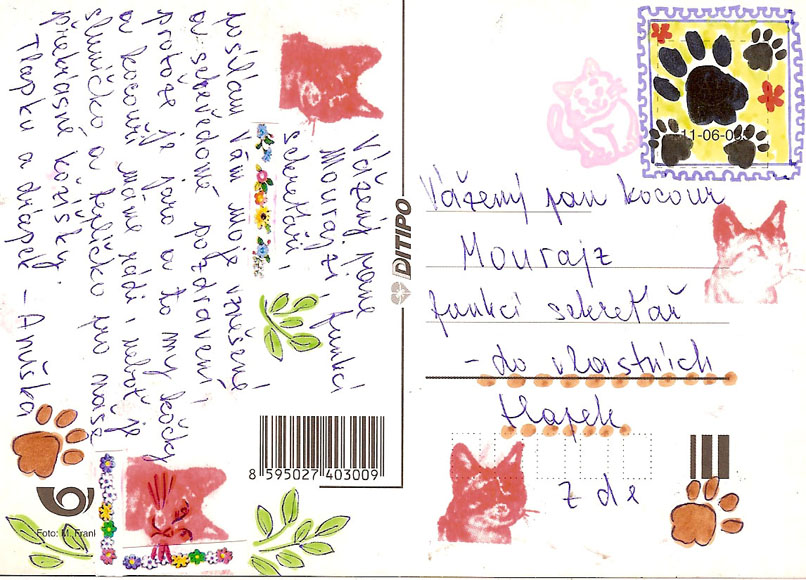 Vážený pane
Mourajzi, funkcí
sekretáři,
posílám Vám moje vznešené
a sebevědomé pozdravení,
protože je jaro a to my kočky
a kocouři máme rádi, neboť je
sluníčko a teplíčko pro naše
překrásné kožíšky.
Tlapku a drápek – Aniška
Foto: M.
8 595027 403009
DITIPO
11-06-0
Vážený pan kocour
Mourajz
funkcí sekretář
- do vlastních
tlapek
zde